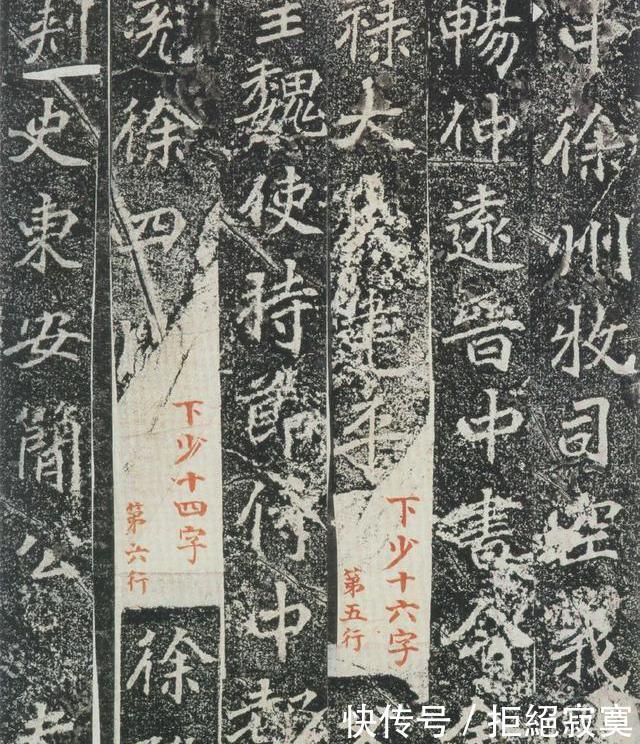 中徐州牧司空義
暢仲遠晉中書令
祿大夫建平
下少十六字
第五行
皇魏使持節侍中都
兗徐四州
下少十四字
第六行
徐
刺史東安簡公
快传号/拒絕寂寞